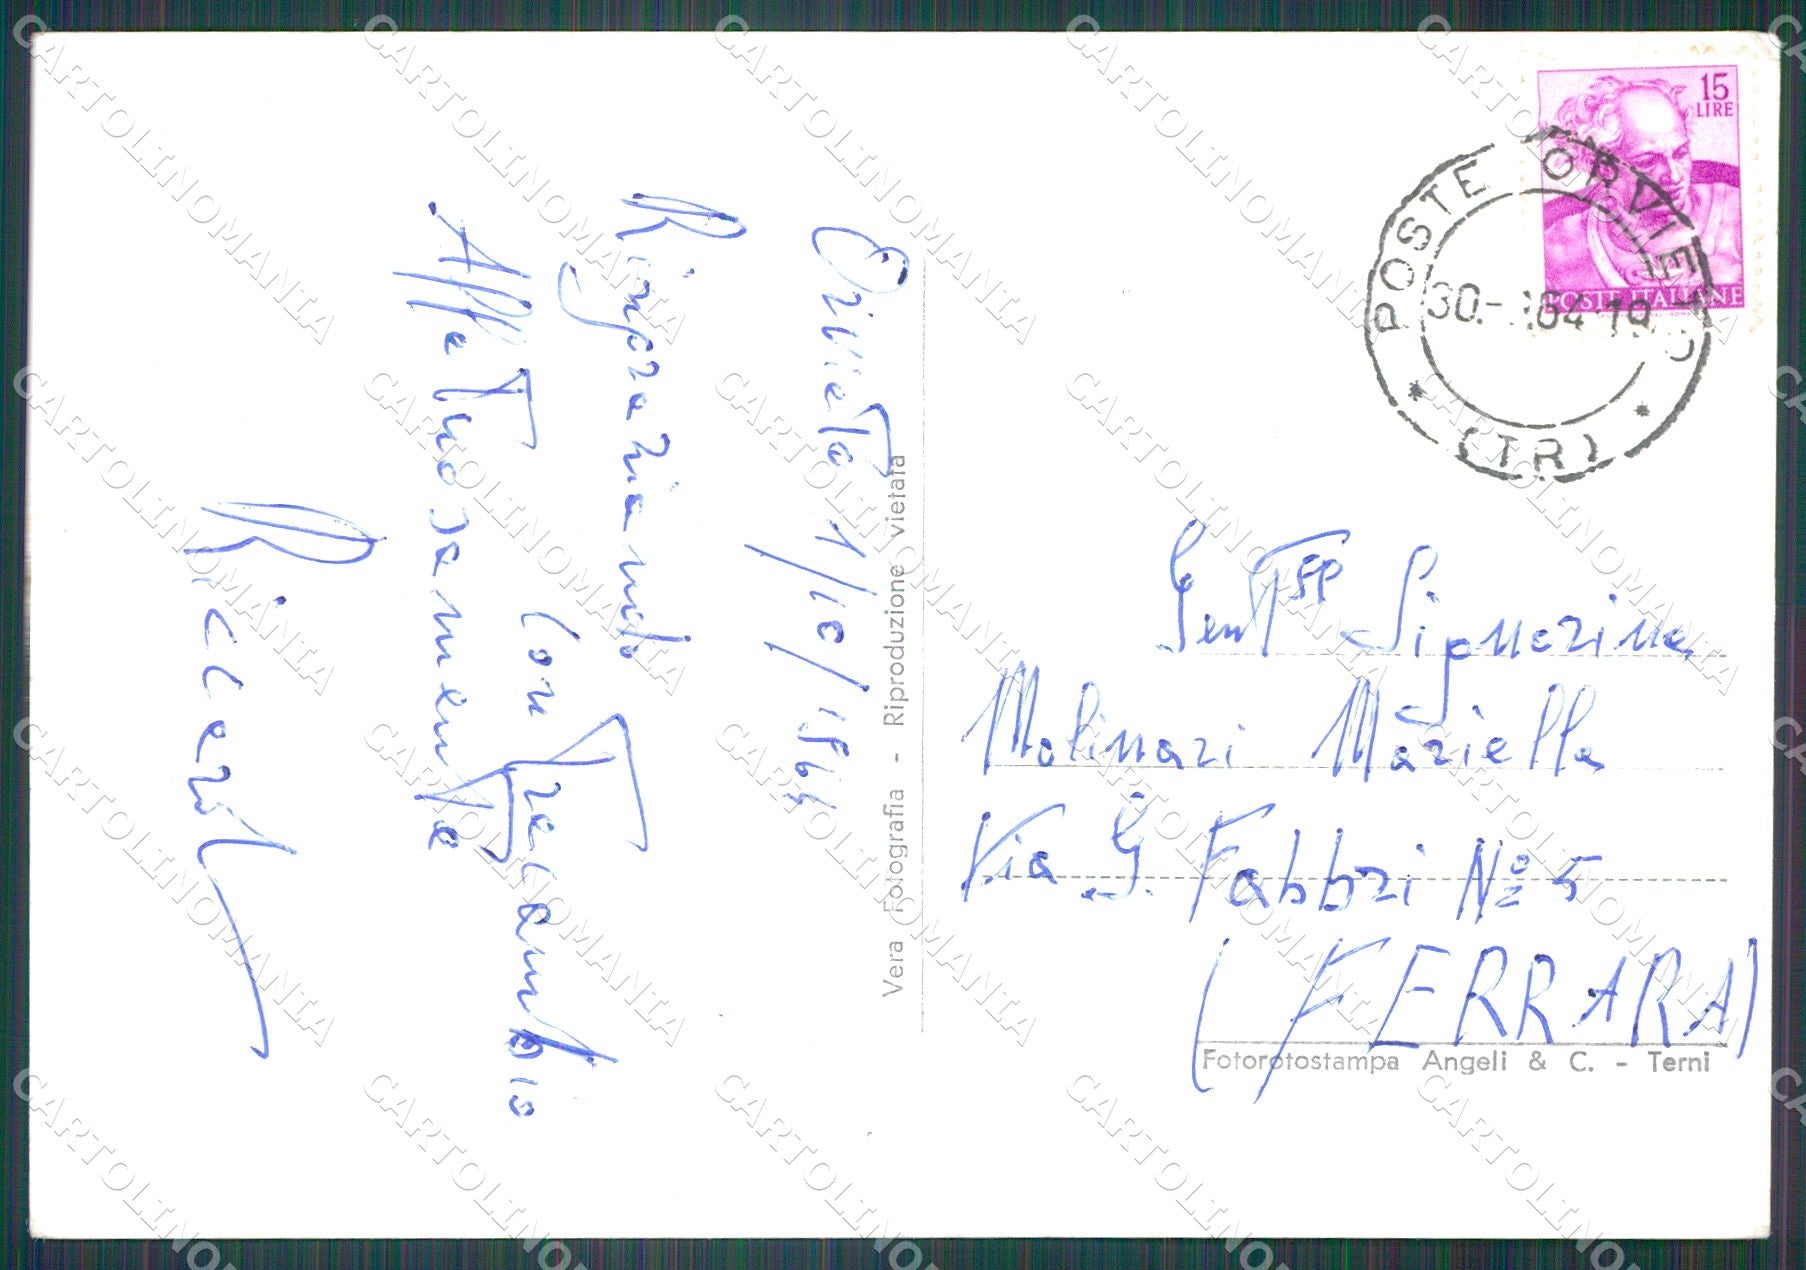 Orvieto 1/10/1964
Ringraziando
con Tracambio
Affettuosamente
Riccardo
Vera Fotografia - Riproduzione vietata
15
LIRE
POSTE ITALIANE
POSTE ORVIETO
30- 64-19
(TR)
Gent Signorina
Molinari Mariella
Via G. Fabbri Nº 5
(FERRARA)
Fotorotostampa Angeli & C. - Terni
CARTOLINOMANIA